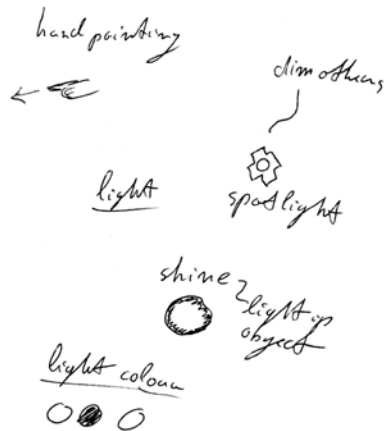 hand pointing
dim others
light
spotlight
shine
light up
object
light colour